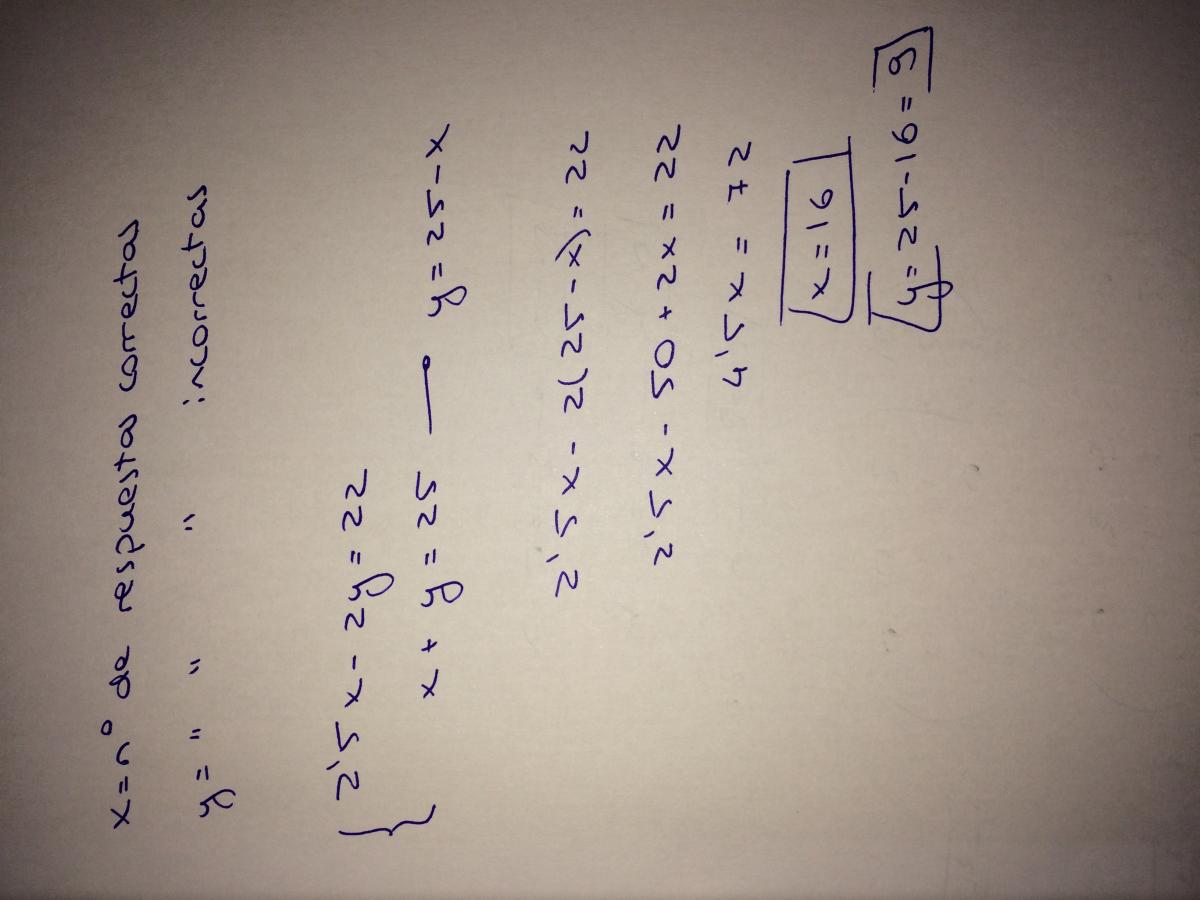 x = nº de respuestas correctas
y = " " " " incorrectas
2'5x - 2y = 22
x + y = 25 — y = 25 - x
2'5x - 2(25-x) = 22
2'5x - 50 + 2x = 22
4'5x = 72
x = 16
y = 25-16 = 9